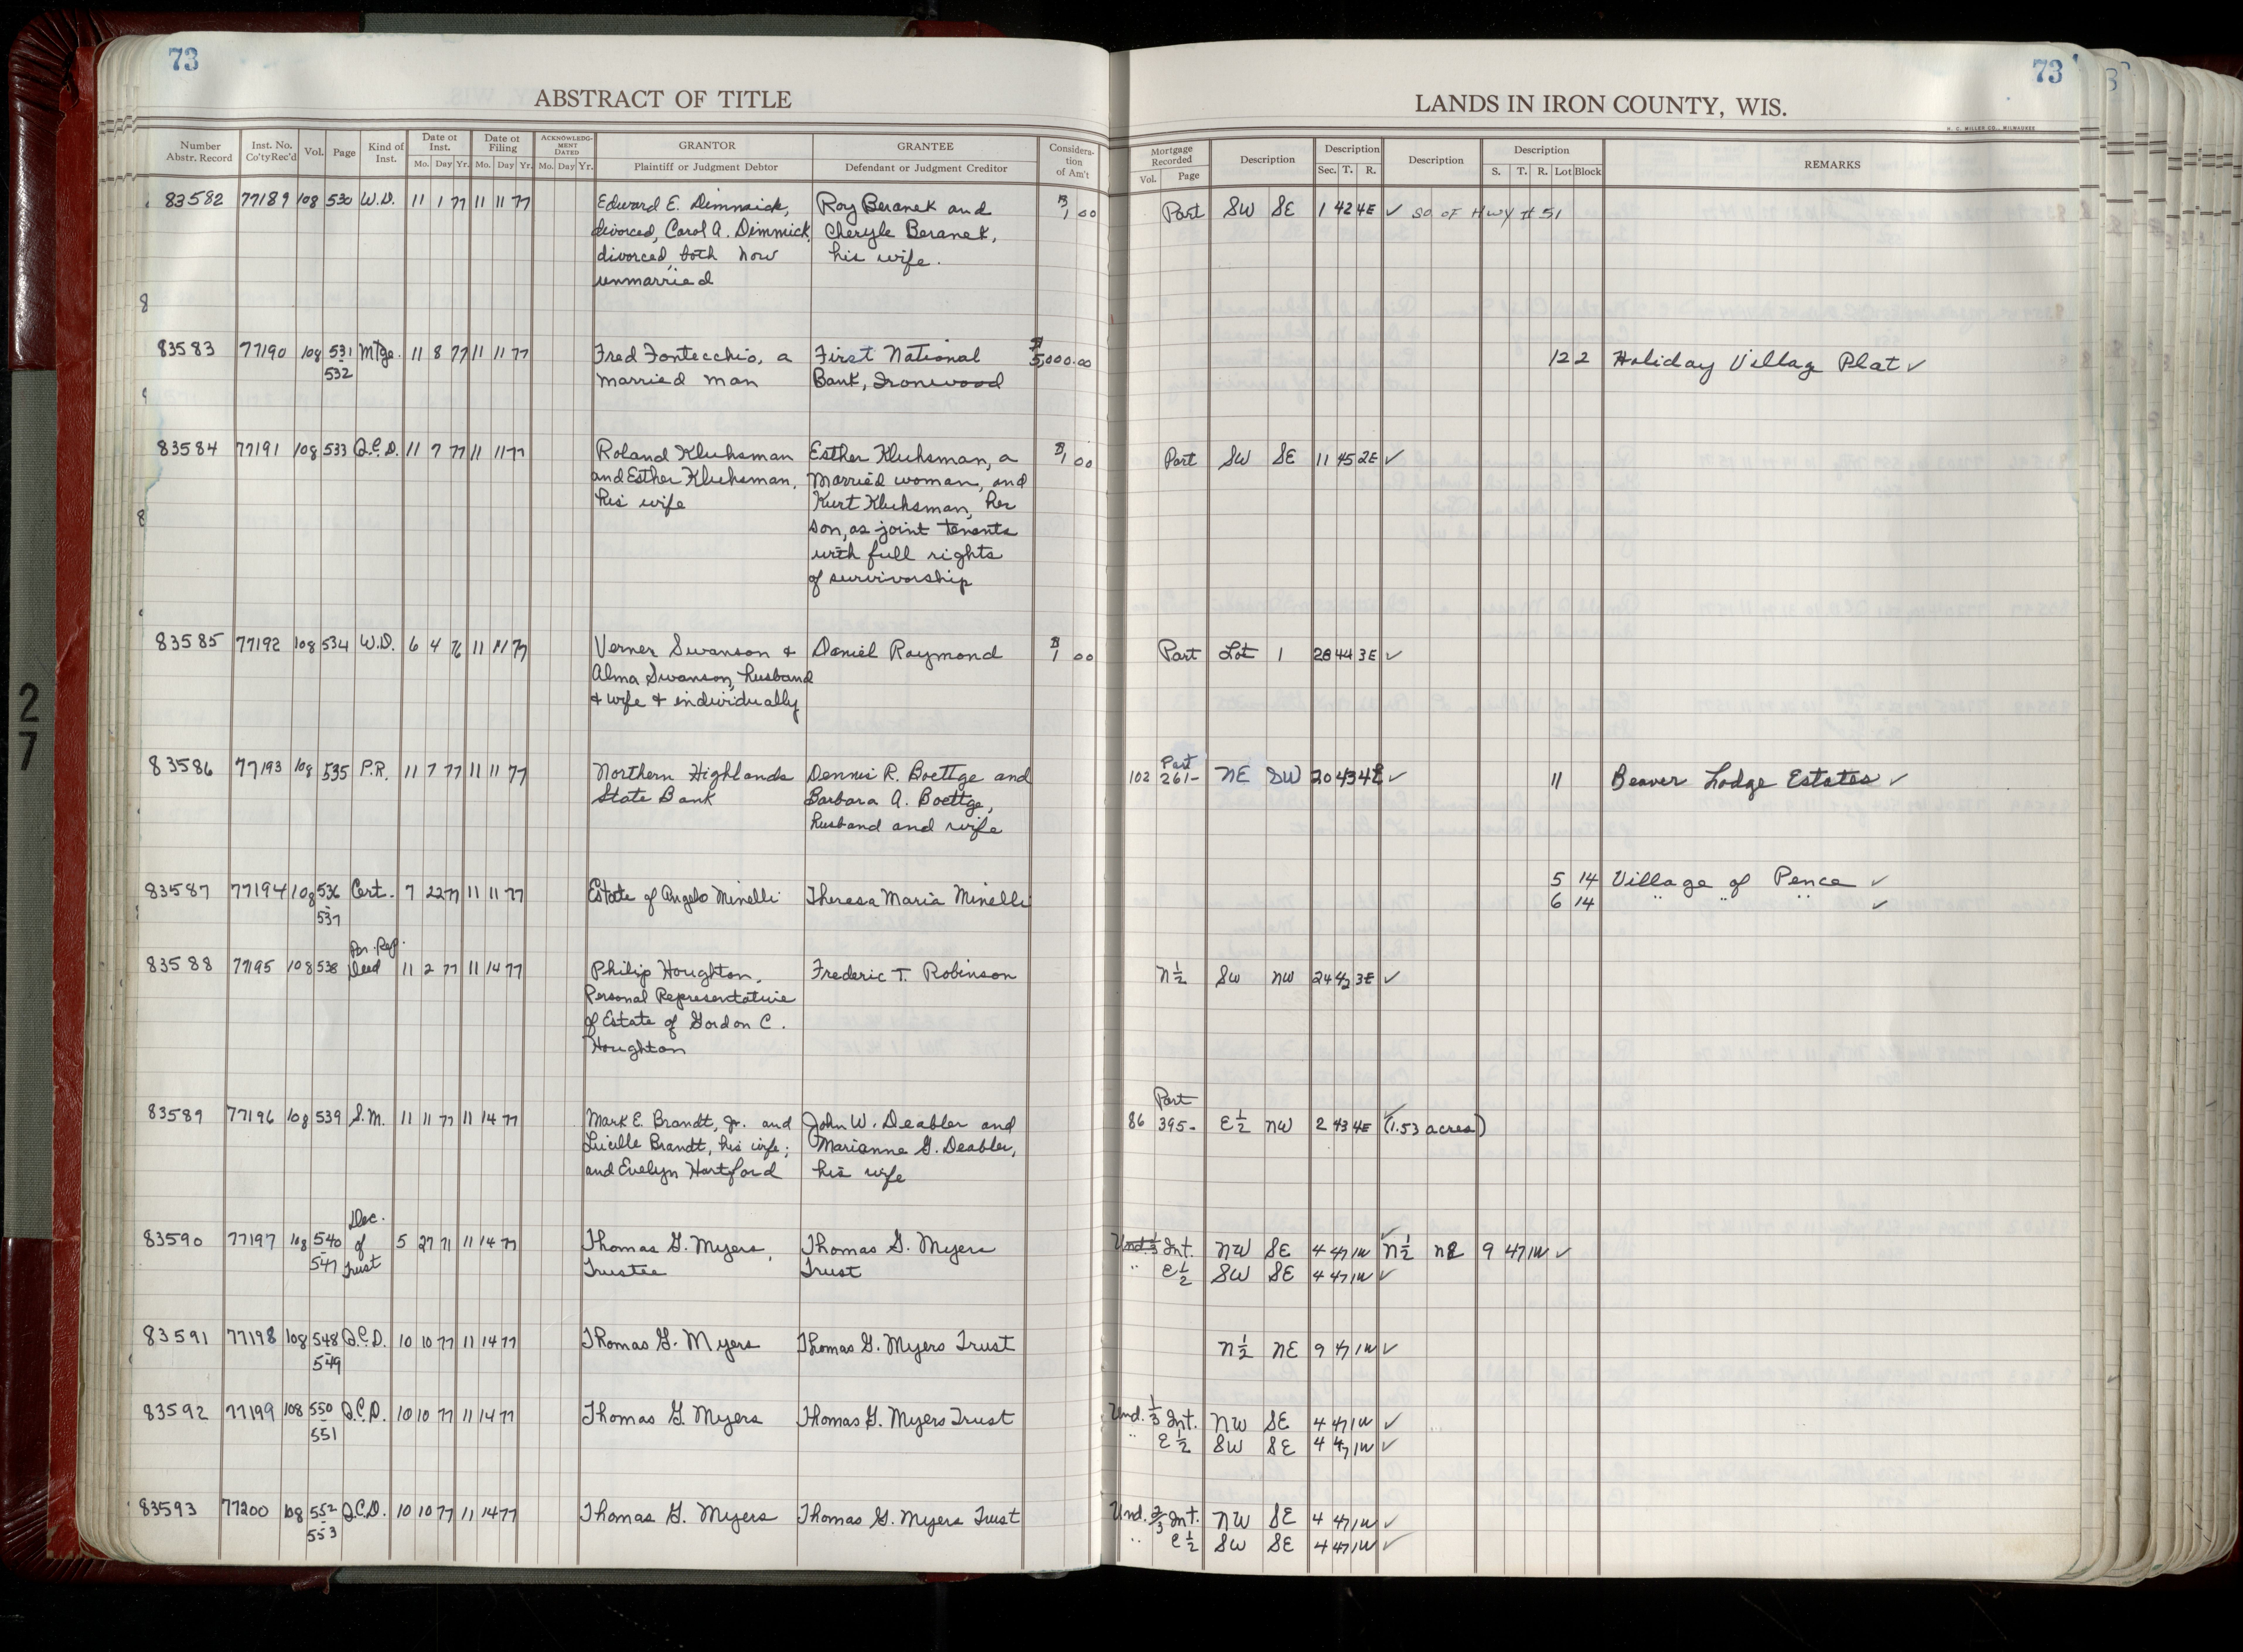 73
ABSTRACT OF TITLE
Number Abstr. Record | Inst. No. Co'ty Rec'd | Vol. | Page | Kind of Inst. | Date of Inst. Mo. Day Yr. | Date of Filing Mo. Day Yr. | ACKNOWLEDGMENT DATED Mo. Day Yr. | GRANTOR Plaintiff or Judgment Debtor | GRANTEE Defendant or Judgment Creditor | Consideration of Am't
83582 77189 108 530 W.D. 11 1 77 11 11 77 Edward E. Dimmick, Roy Beranek and $1 00
divorced, Carol A. Dimmick, Cheryle Beranek,
divorced, both now his wife.
unmarried
83583 77190 108 531 Mtge. 11 8 77 11 11 77 Fred Fontecchio, a First National $5,000.00
532 married man Bank, Ironwood
83584 77191 108 533 Q.C.D. 11 7 77 11 11 77 Roland Kluhsman Esther Kluhsman, a $1 00
and Esther Kluhsman, Married woman, and
his wife Kurt Kluhsman, her
son, as joint tenants
with full rights
of survivorship
83585 77192 108 534 W.D. 6 4 76 11 11 77 Verner Swanson & Daniel Raymond $1 00
Alma Swanson, husband
& wife & individually
83586 77193 108 535 P.R. 11 7 77 11 11 77 Northern Highlands Dennis R. Boettge and
State Bank Barbara A. Boettge,
husband and wife
83587 77194 108 536 Cert. 7 22 77 11 11 77 Estate of Angelo Minelli Theresa Maria Minelli
537
Per. Rep.
83588 77195 108 538 Deed 11 2 77 11 14 77 Philip Houghton, Frederic T. Robinson
Personal Representative
of Estate of Gordon C.
Houghton
83589 77196 108 539 S.M. 11 11 77 11 14 77 Mark E. Brandt, Jr. and John W. Deabler and
Lucille Brandt, his wife; Marianne G. Deabler,
and Evelyn Hartford his wife
Dec.
83590 77197 108 540 of 5 27 71 11 14 77 Thomas G. Myers, Thomas G. Myers
547 Trust Trustee Trust
83591 77198 108 548 Q.C.D. 10 10 77 11 14 77 Thomas G. Myers Thomas G. Myers Trust
549
83592 77199 108 550 Q.C.D. 10 10 77 11 14 77 Thomas G. Myers Thomas G. Myers Trust
551
83593 77200 108 552 Q.C.D. 10 10 77 11 14 77 Thomas G. Myers Thomas G. Myers Trust
553
73
LANDS IN IRON COUNTY, WIS.
H. C. MILLER CO., MILWAUKEE
Mortgage Recorded Vol. Page | Description | Description Sec. T. R. | Description | Description S. T. R. Lot Block | REMARKS
Part SW SE 1 42 4E ✓ SO OF HWY # 51
12 2 Holiday Village Plat ✓
Part SW SE 11 45 2E ✓
Part Lot 1 28 44 3E ✓
Part
102 261- NE SW 20 43 4E ✓ 11 Beaver Lodge Estates ✓
5 14 Village of Pence ✓
6 14 " " " ✓
N½ SW NW 24 42 3E ✓
Part
86 395- E½ NW 2 43 4E ✓ (1.53 acres)
Und. ⅓ Int. NW SE 4 47 1W ✓ N½ NE 9 47 1W ✓
" E½ SW SE 4 47 1W ✓
N½ NE 9 47 1W ✓
Und. ⅓ Int. NW SE 4 47 1W ✓
" E½ SW SE 4 47 1W ✓
Und. ⅔ Int. NW SE 4 47 1W ✓
" E½ SW SE 4 47 1W ✓
27